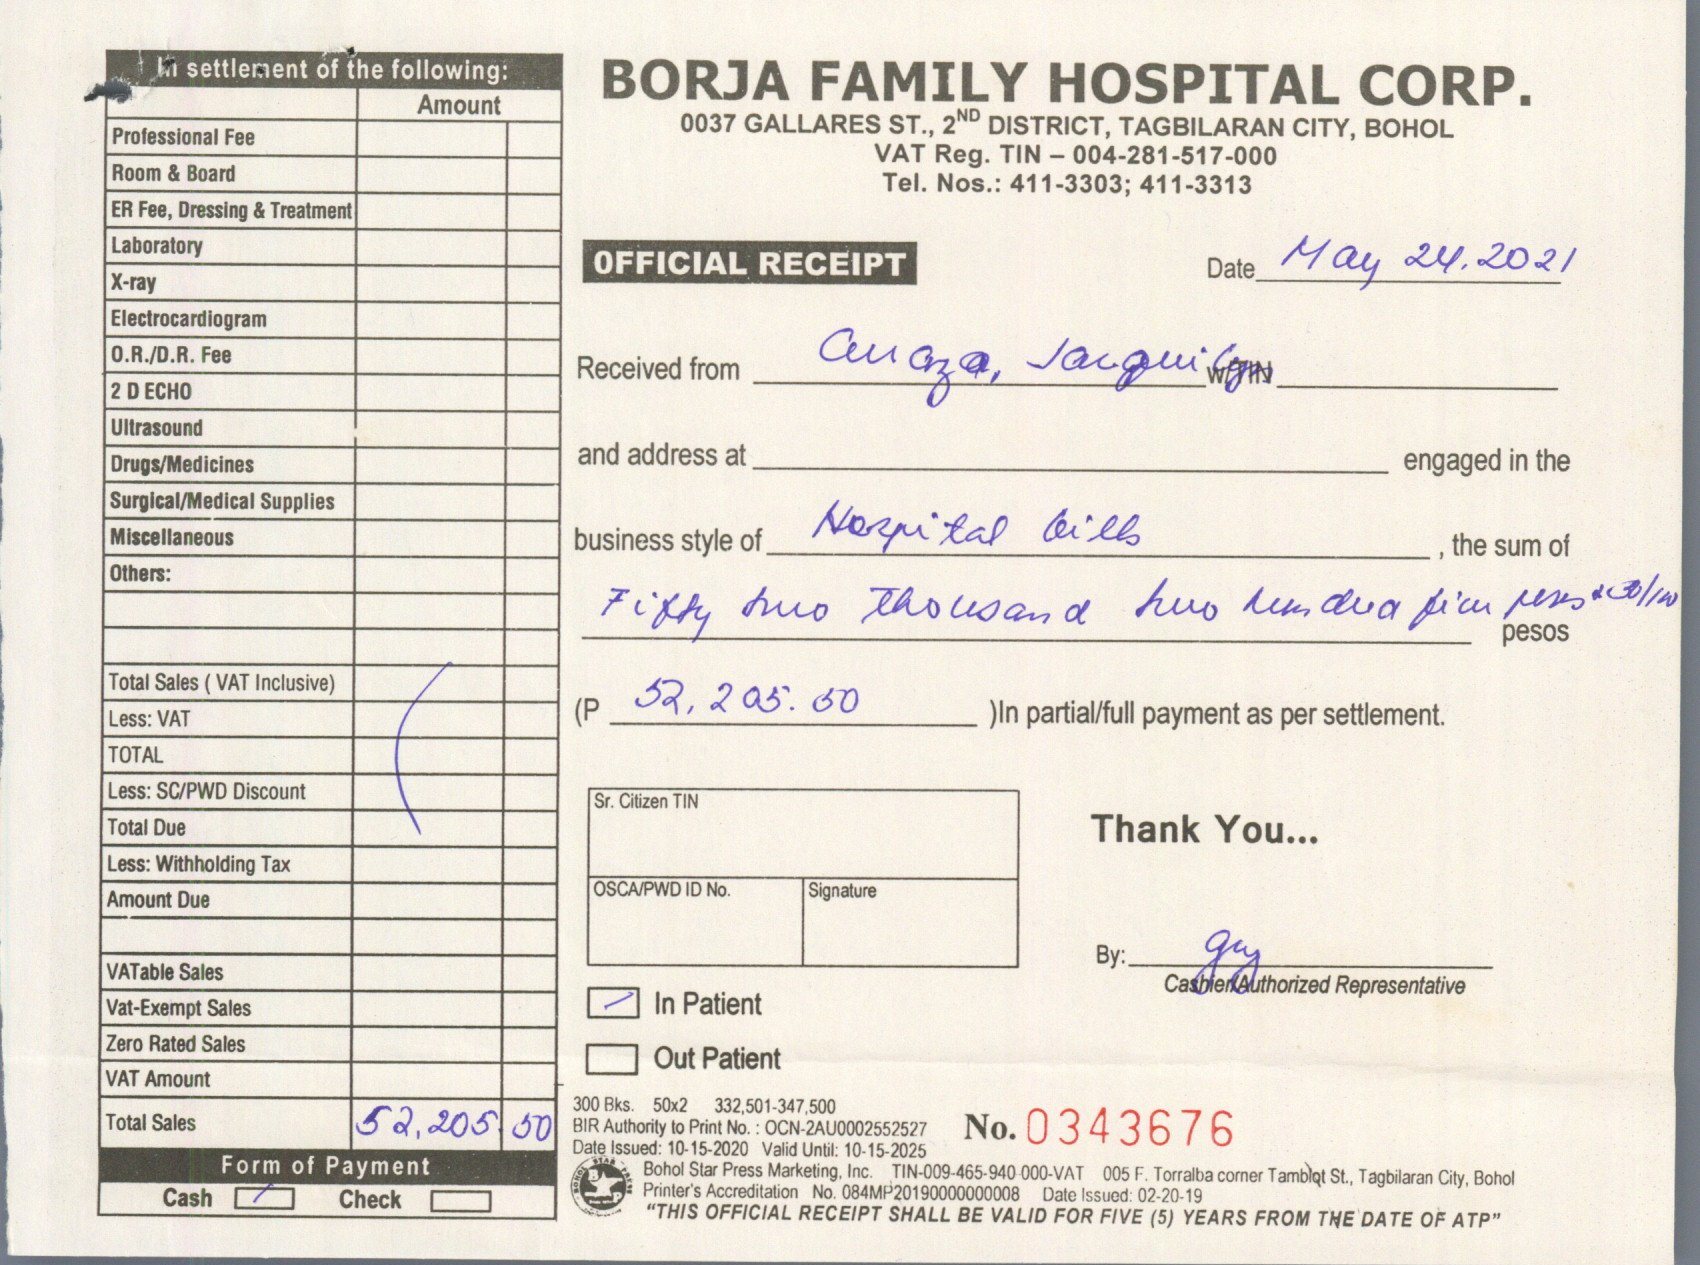 In settlement of the following:
Amount
Professional Fee
Room & Board
ER Fee, Dressing & Treatment
Laboratory
X-ray
Electrocardiogram
O.R./D.R. Fee
2 D ECHO
Ultrasound
Drugs/Medicines
Surgical/Medical Supplies
Miscellaneous
Others:
Total Sales ( VAT Inclusive)
Less: VAT
TOTAL
Less: SC/PWD Discount
Total Due
Less: Withholding Tax
Amount Due
VATable Sales
Vat-Exempt Sales
Zero Rated Sales
VAT Amount
Total Sales 52,205.50
Form of Payment
Cash Check
BORJA FAMILY HOSPITAL CORP.
0037 GALLARES ST., 2ND DISTRICT, TAGBILARAN CITY, BOHOL
VAT Reg. TIN – 004-281-517-000
Tel. Nos.: 411-3303; 411-3313
OFFICIAL RECEIPT
Date May 24, 2021
Received from w/TIN
and address at engaged in the
business style of Hospital bills , the sum of
Fifty two thousand two hundred five pesos & 50/100
pesos
(P 52,205.50 )In partial/full payment as per settlement.
Sr. Citizen TIN
OSCA/PWD ID No. Signature
Thank You...
By:
Cashier/Authorized Representative
In Patient
Out Patient
300 Bks. 50x2 332,501-347,500
BIR Authority to Print No. : OCN-2AU0002552527
Date Issued: 10-15-2020 Valid Until: 10-15-2025
No. 0343676
Bohol Star Press Marketing, Inc. TIN-009-465-940-000-VAT 005 F. Torralba corner Tamblot St., Tagbilaran City, Bohol
Printer's Accreditation No. 084MP20190000000008 Date Issued: 02-20-19
"THIS OFFICIAL RECEIPT SHALL BE VALID FOR FIVE (5) YEARS FROM THE DATE OF ATP"